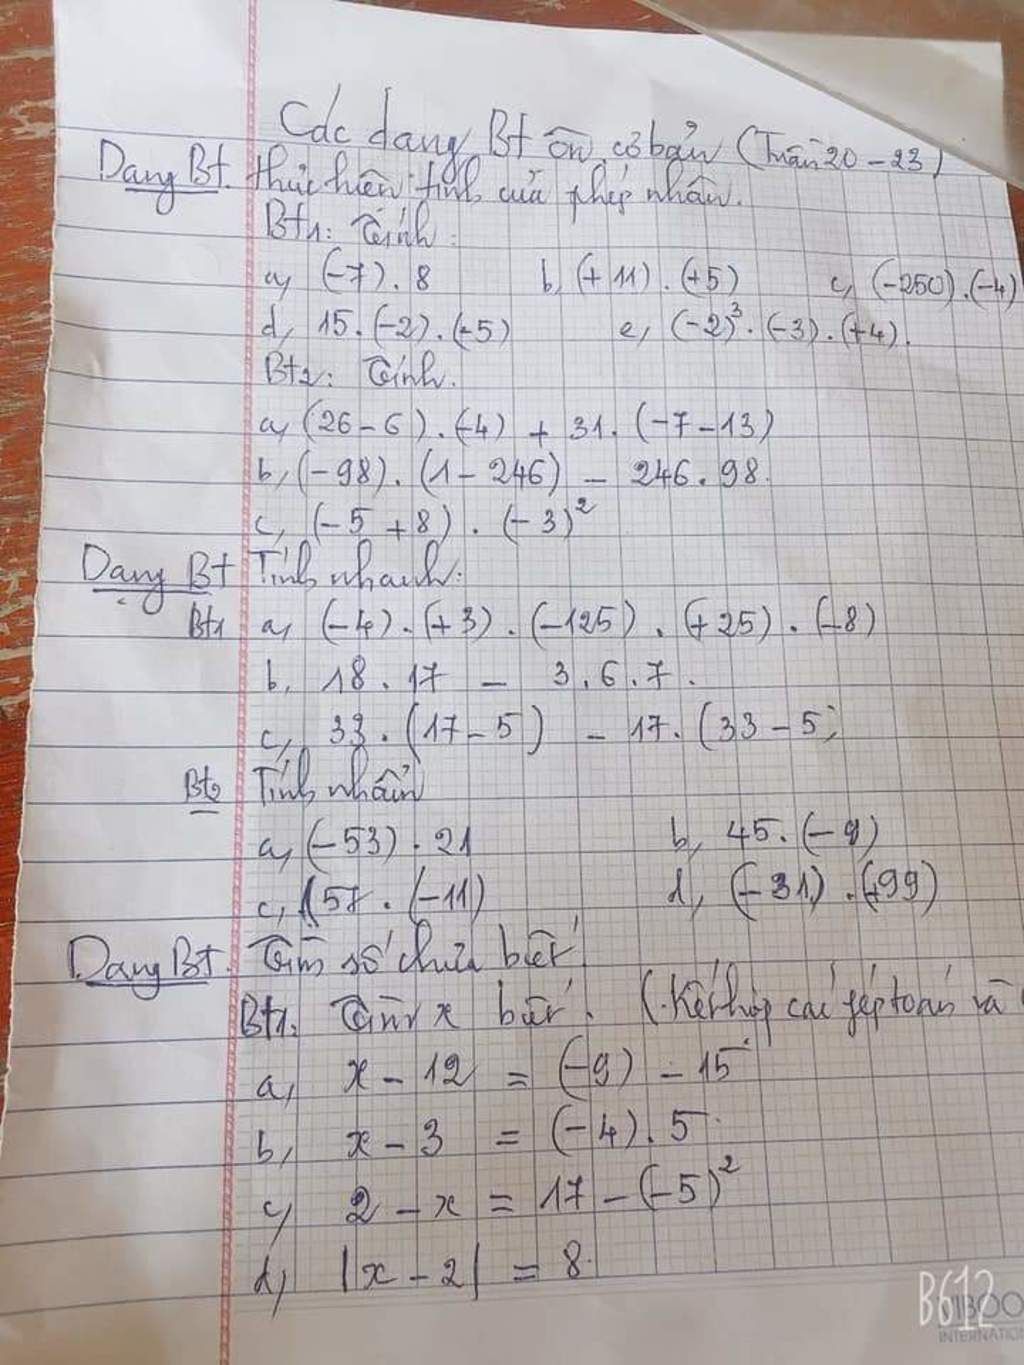 Các dạng Bt ôn cơ bản (Tuần 20 - 23)
Dạng Bt. Thực hiện tính của phép nhân.
Bt1: Tính:
a, (-7) . 8 b, (+11) . (+5) c, (-250) . (-4)
d, 15 . (-2) . (-5) e, (-2)³ . (-3) . (+4).
Bt2: Tính.
a, (26 - 6) . (-4) + 31 . (-7 - 13)
b, (-98) . (1 - 246) - 246 . 98
c, (-5 + 8) . (-3)²
Dạng Bt Tính nhanh:
Bt1 a, (-4) . (+3) . (-125) . (+25) . (-8)
b, 18 . 17 - 3 . 6 . 7 .
c, 33 . (17 - 5) - 17 . (33 - 5)
Bt2 Tính nhẩm
a, (-53) . 21 b, 45 . (-9)
c, 157 . (-11) d, (-31) . (-99)
Dạng Bt. Tìm số chưa biết
Bt1: Tìm x biết. (Kết hợp các phép toán và
a, x - 12 = (-9) - 15
b, x - 3 = (-4) . 5
c, 2 - x = 17 - (-5)²
d, |x - 2| = 8
B612
VIBOO
INTERNATION